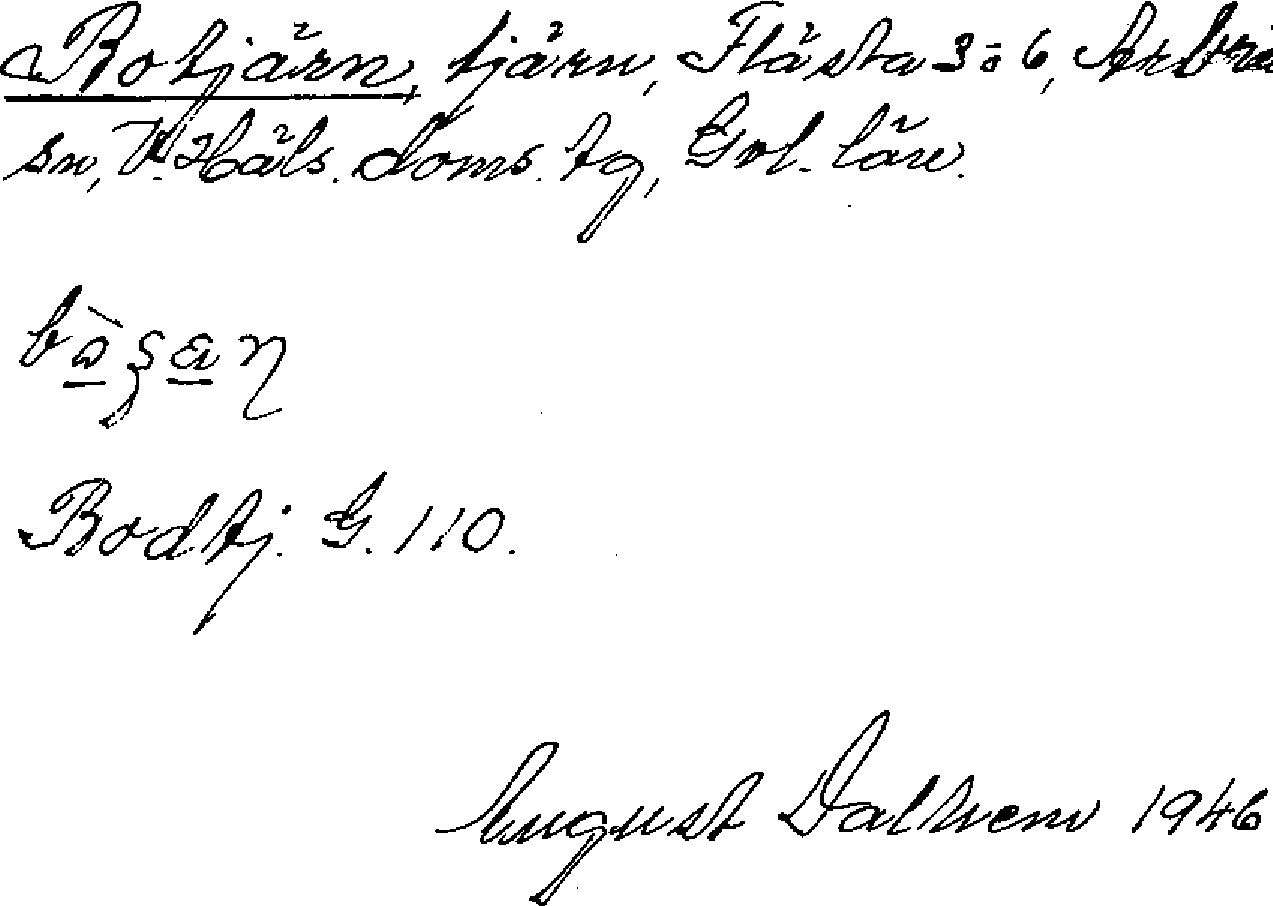 Botjärn, tjärn, Flästa 3:6, Arbrå
sn, V. Häls. doms. tg, Gvl. län.
Bodtj. G. 110.
August Dalhem 1946